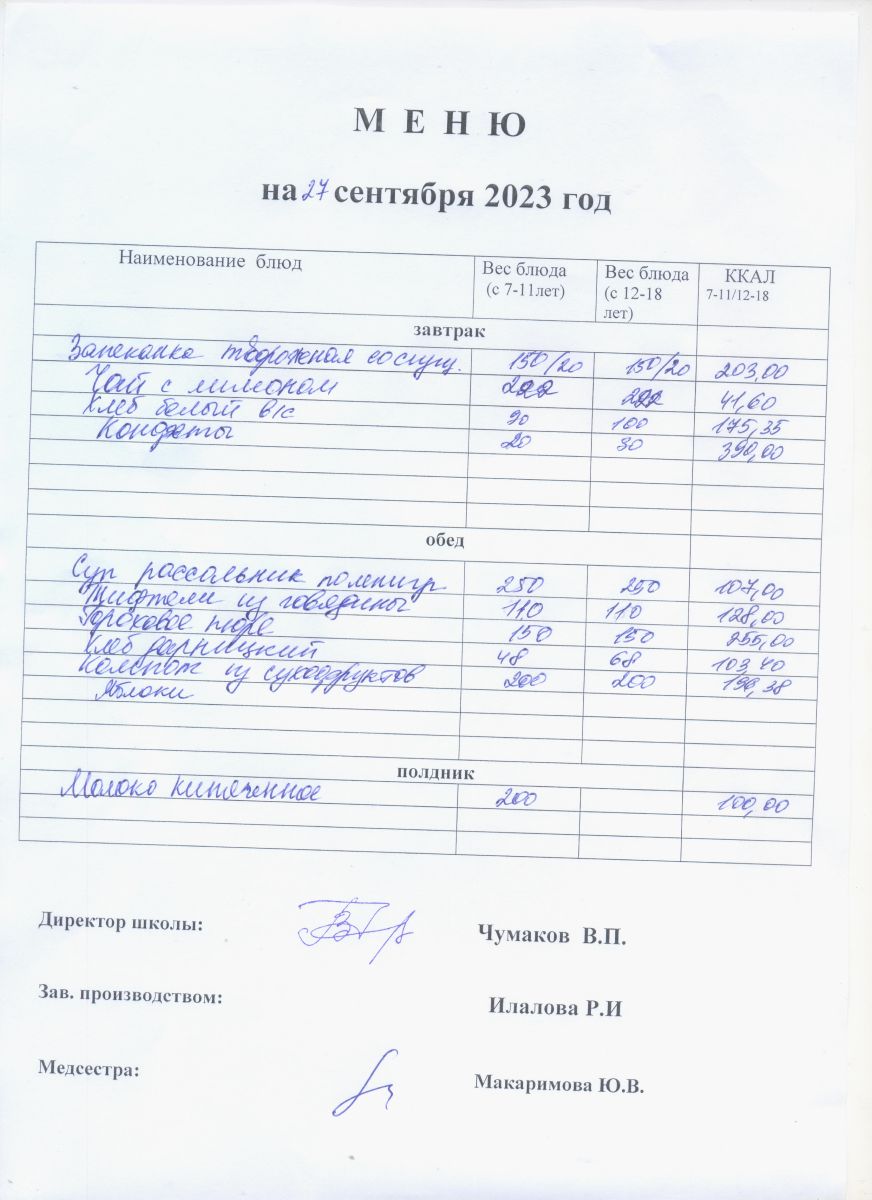 М Е Н Ю
на 27 сентября 2023 год
Наименование блюд Вес блюда (с 7-11лет) Вес блюда (с 12-18 лет) ККАЛ 7-11/12-18
завтрак
Запеканка творожная со сгущ. 150/20 150/20 203,00
Чай с лимоном 222 222 41,60
Хлеб белый в/с 90 100 175,35
Конфеты 20 30 390,00
обед
Суп рассольник по ленигр 250 250 107,00
Тифтели из говядины 110 110 128,00
Гороховое пюре 150 150 255,00
Хлеб дарницкий 48 68 103,40
Компот из сухофруктов 200 200 196,38
Яблоки
полдник
Молоко кипяченное 200 100,00
Директор школы: Чумаков В.П.
Зав. производством: Илалова Р.И
Медсестра: Макаримова Ю.В.